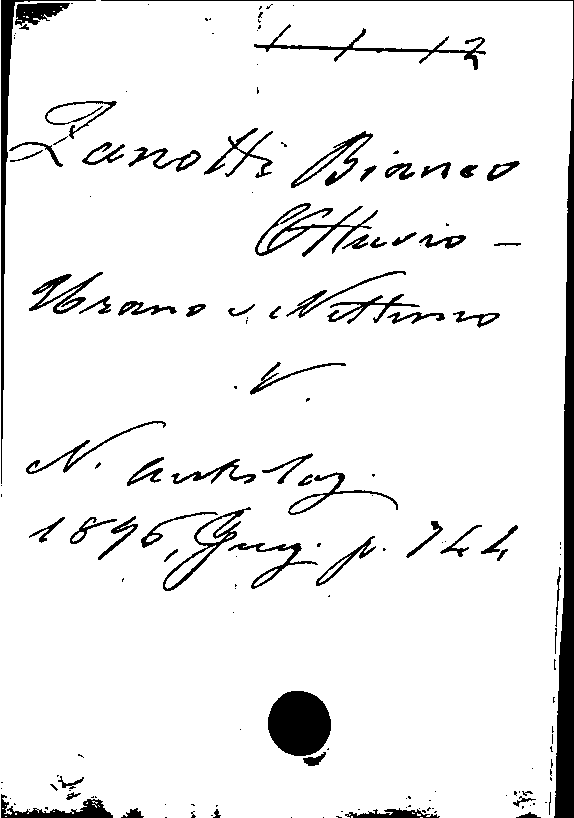 1 1 12
Zanotti Bianco
Ottavio –
Urano e Nettuno
V.
N. Antolog.
1896, Giug. p. 744